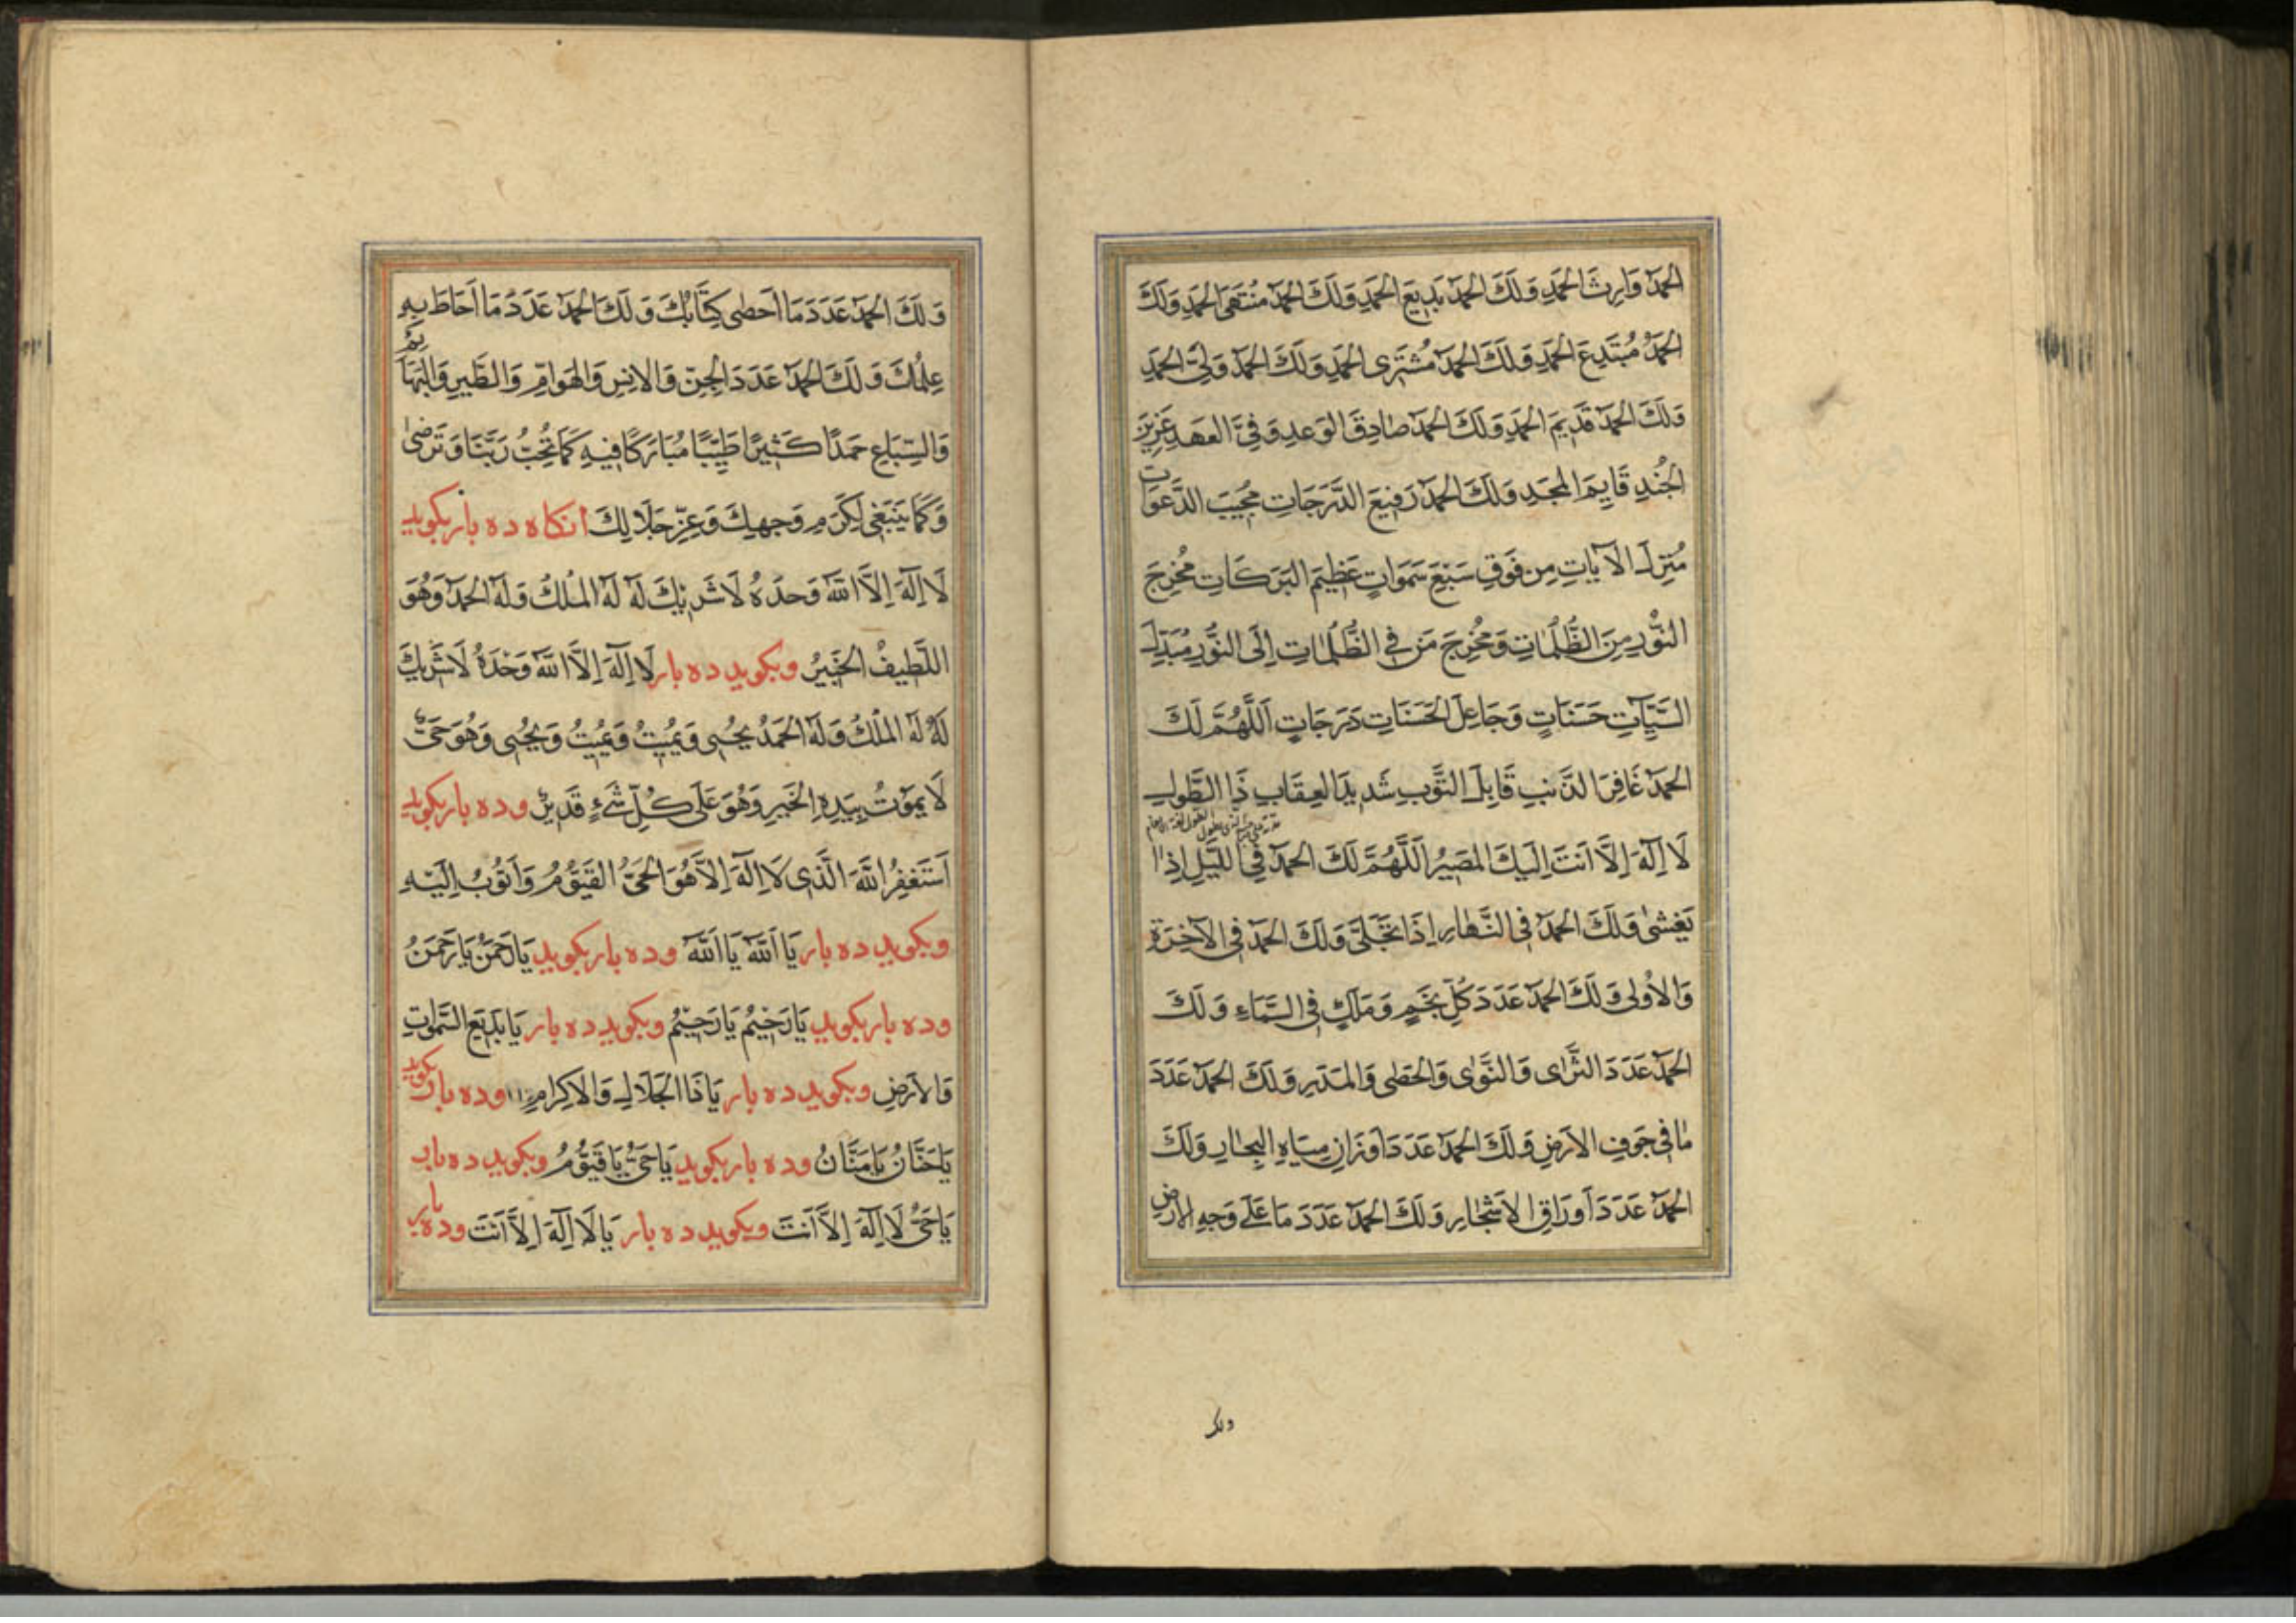 الْحَمْدُ وَارِثَ الْحَمْدِ وَلَكَ الْحَمْدُ بَدِيعَ الْحَمْدِ وَلَكَ الْحَمْدُ مُنْتَهَى الْحَمْدِ وَلَكَ
الْحَمْدُ مُبْتَدِعَ الْحَمْدِ وَلَكَ الْحَمْدُ مُشْتَرِى الْحَمْدِ وَلَكَ الْحَمْدُ وَلِىَّ الْحَمْدِ
وَلَكَ الْحَمْدُ قَدِيمَ الْحَمْدِ وَلَكَ الْحَمْدُ صَادِقَ الْوَعْدِ وَفِىَّ الْعَهْدِ عَزِيزَ
الْجُنْدِ قَايِمَ الْمَجْدِ وَلَكَ الْحَمْدُ رَفِيعَ الدَّرَجَاتِ مُجِيبَ الدَّعَوَاتِ
مُنْزِلَ الْآيَاتِ مِنْ فَوْقِ سَبْعِ سَمَوَاتٍ عَظِيمَ الْبَرَكَاتِ مُخْرِجَ
النُّورِ مِنَ الظُّلُمَاتِ وَمُخْرِجَ مَنْ فِى الظُّلُمَاتِ اِلَى النُّورِ مُبَدِّلَ
السَّيِّئَاتِ حَسَنَاتٍ وَجَاعِلَ الْحَسَنَاتِ دَرَجَاتٍ اَللَّهُمَّ لَكَ
الْحَمْدُ غَافِرَ الذَّنْبِ قَابِلَ التَّوْبِ شَدِيدَ الْعِقَابِ ذَا الطَّوْلِ
لَا اِلَهَ اِلَّا اَنْتَ اِلَيْكَ الْمَصِيرُ اَللَّهُمَّ لَكَ الْحَمْدُ فِى اللَّيْلِ اِذَا
يَغْشَى وَلَكَ الْحَمْدُ فِى النَّهَارِ اِذَا تَجَلَّى وَلَكَ الْحَمْدُ فِى الْآخِرَةِ
وَالْاُولَى وَلَكَ الْحَمْدُ عَدَدَ كُلِّ نَجْمٍ وَمَلَكٍ فِى السَّمَاءِ وَلَكَ
الْحَمْدُ عَدَدَ الثَّرَى وَالنَّوَى وَالْحَصَى وَالْمَدَرِ وَلَكَ الْحَمْدُ عَدَدَ
مَا فِى جَوْفِ الْاَرْضِ وَلَكَ الْحَمْدُ عَدَدَ اَوْزَانِ مِيَاهِ الْبِحَارِ وَلَكَ
الْحَمْدُ عَدَدَ اَوْرَاقِ الْاَشْجَارِ وَلَكَ الْحَمْدُ عَدَدَ مَا عَلَى وَجْهِ الْاَرْضِ
ولک
وَلَكَ الْحَمْدُ عَدَدَ مَا اَحْصَى كِتَابُكَ وَلَكَ الْحَمْدُ عَدَدَ مَا اَحَاطَ بِهِ
عِلْمُكَ وَلَكَ الْحَمْدُ عَدَدَ الْجِنِّ وَالْاِنْسِ وَالْهَوَامِّ وَالطَّيْرِ وَالْبَهَائِمِ
وَالسِّبَاعِ حَمْدًا كَثِيرًا طَيِّبًا مُبَارَكًا فِيهِ كَمَا تُحِبُّ رَبَّنَا وَتَرْضَى
وَكَمَا يَنْبَغِى لِكَرَمِ وَجْهِكَ وَعِزِّ جَلَالِكَ انکاه ده بار بکوید
لَا اِلَهَ اِلَّا اللَّهُ وَحْدَهُ لَا شَرِيكَ لَهُ لَهُ الْمُلْكُ وَلَهُ الْحَمْدُ وَهُوَ
اللَّطِيفُ الْخَبِيرُ وبکوید ده بار لَا اِلَهَ اِلَّا اللَّهُ وَحْدَهُ لَا شَرِيكَ
لَهُ لَهُ الْمُلْكُ وَلَهُ الْحَمْدُ يُحْيِى وَيُمِيتُ وَيُمِيتُ وَيُحْيِى وَهُوَ حَىٌّ
لَا يَمُوتُ بِيَدِهِ الْخَيْرِ وَهُوَ عَلَى كُلِّ شَىْءٍ قَدِيرٌ وده بار بکوید
اَسْتَغْفِرُ اللَّهَ الَّذِى لَا اِلَهَ اِلَّا هُوَ الْحَىُّ الْقَيُّومُ وَاَتُوبُ اِلَيْهِ
وبکوید ده بار يَا اَللَّهُ يَا اَللَّهُ وده بار بکوید يَا رَحْمَنُ يَا رَحْمَنُ
وده بار بکوید يَا رَحِيمُ يَا رَحِيمُ وبکوید ده بار يَا بَدِيعَ السَّمَوَاتِ
وَالْاَرْضِ وبکوید ده بار يَا ذَا الْجَلَالِ وَالْاِكْرَامِ وده بار بکوید
يَا حَنَّانُ يَا مَنَّانُ وده بار بکوید يَا حَىُّ يَا قَيُّومُ وبکوید ده بار
يَا حَىُّ لَا اِلَهَ اِلَّا اَنْتَ وبکوید ده بار يَا لَا اِلَهَ اِلَّا اَنْتَ وده بار